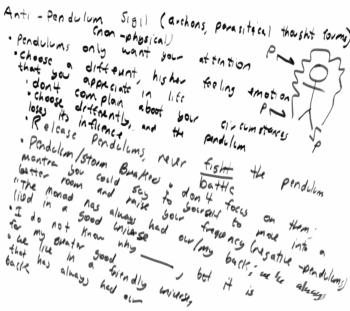 Anti-Pendulum Sigil (archons, parasitical thought forms)
(non-physical)
• Pendulums only want your attention
• Choose a different, higher feeling emotion
that you appreciate in life
• don't complain about your circumstances
• choose differently, and the pendulum
loses its influence
• Release Pendulums, never fight the pendulum
battle
• Pendulum/Storm Breakers: don't focus on them;
mantra you could say to yourself to move into a
better room and raise your frequency (negative-pendulums)
"The Monad has always had our/my back; we've always
lived in a good universe
• I do not know why ____, but it is
for my greater good
• we live in a friendly universe,
that has always had our
back
P 1
P 2
P